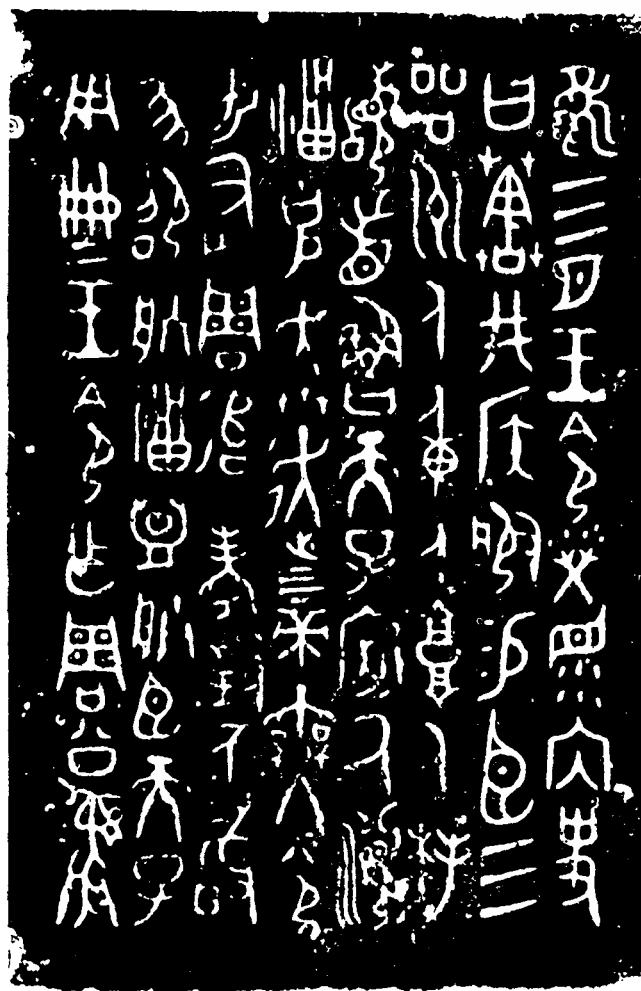 隹三月王令榮眔内史
曰𦳢井侯服易臣三
品州人重人𩫖人拜
稽首魯天子𢓊厥瀕
福克奔走上下帝無冬令
于有周追考對不敢
墜邵朕福盟朕臣天子
用典王令乍周公彝